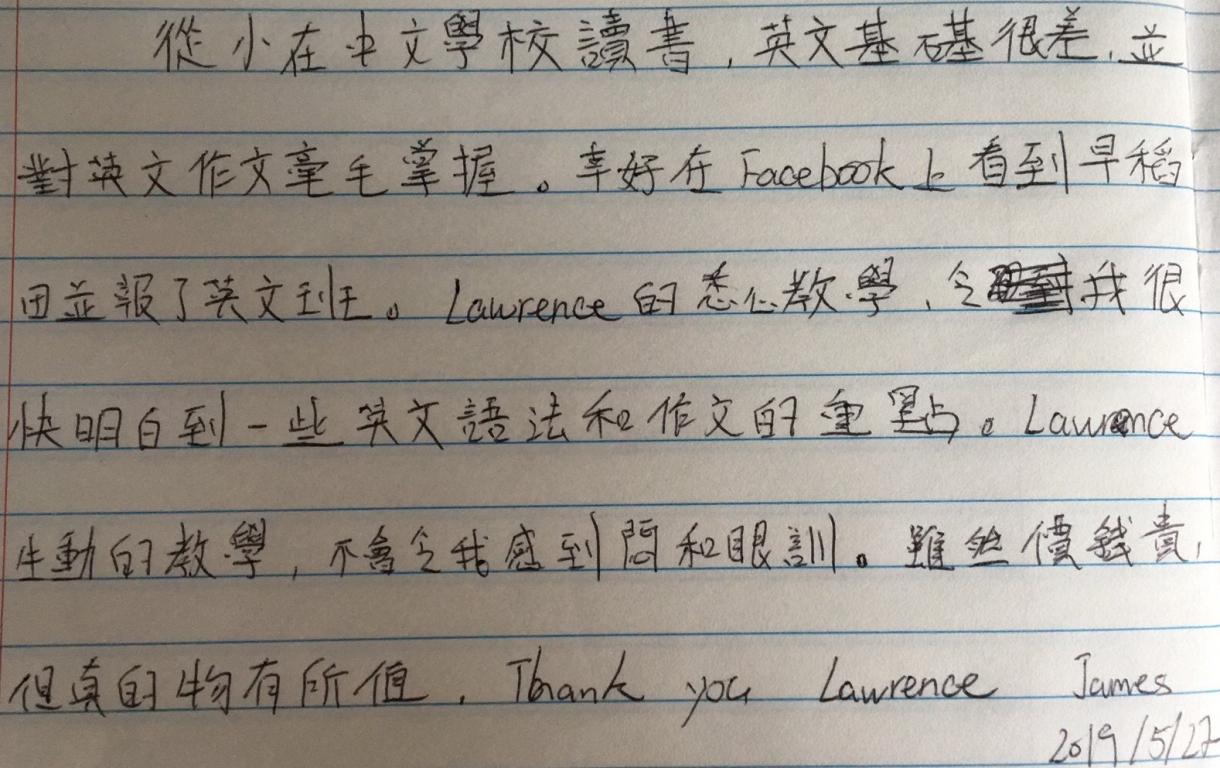 從小在中文學校讀書，英文基礎很差，並
對英文作文毫毛掌握。幸好在Facebook上看到早稻
田並報了英文班。Lawrence的悉心教學，令我很
快明白到一些英文語法和作文的重點。Lawrence
生動的教學，不會令我感到悶和眼訓。雖然價錢貴，
但真的物有所值，Thank you Lawrence James
2019/5/27